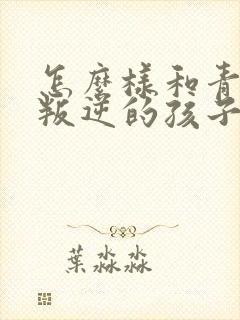 怎麼樣和青
叛逆的孩子
葉淼淼